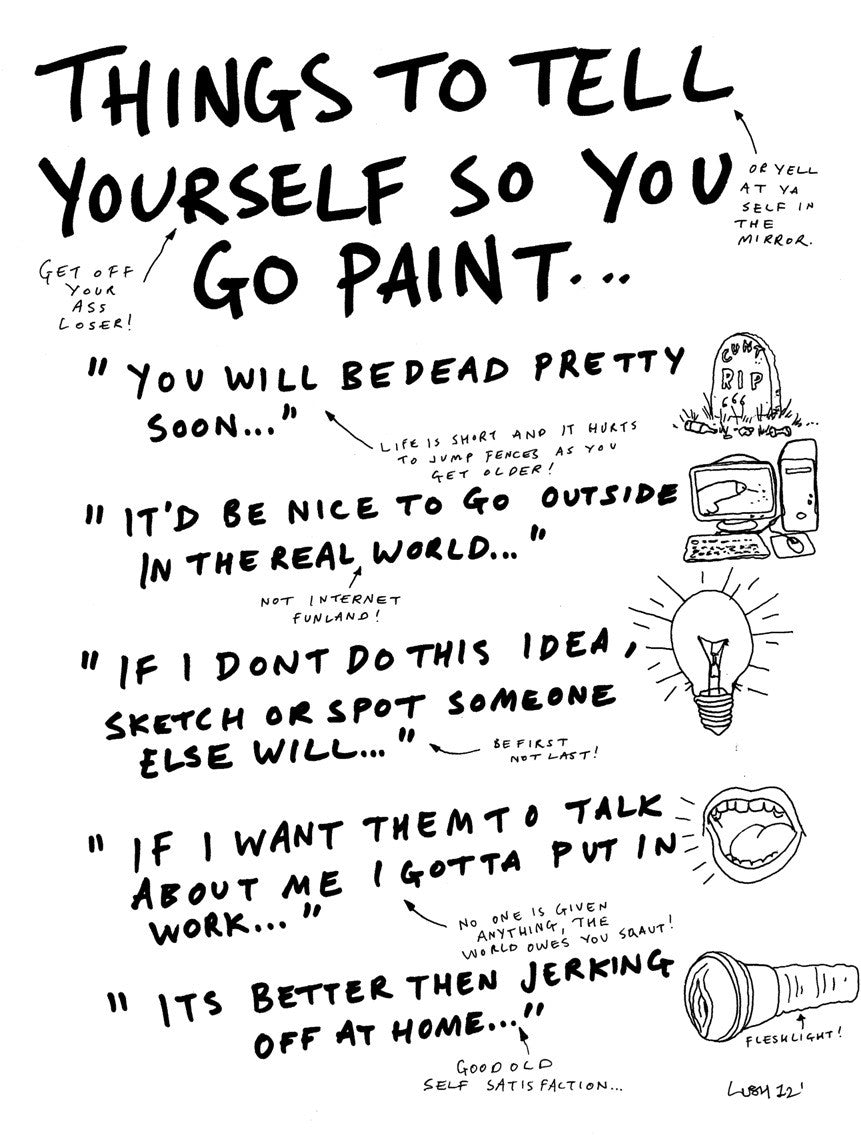 THINGS TO TELL
YOURSELF SO YOU
GO PAINT...
OR YELL
AT YA
SELF IN
THE
MIRROR.
GET OFF
YOUR
ASS
LOSER!
" YOU WILL BE DEAD PRETTY
SOON..."
LIFE IS SHORT AND IT HURTS
TO JUMP FENCES AS YOU
GET OLDER!
CUNT
RIP
666
" IT'D BE NICE TO GO OUTSIDE
IN THE REAL WORLD..."
NOT INTERNET
FUNLAND!
" IF I DONT DO THIS IDEA,
SKETCH OR SPOT SOMEONE
ELSE WILL..."
BE FIRST
NOT LAST!
" IF I WANT THEM TO TALK
ABOUT ME I GOTTA PUT IN
WORK..."
NO ONE IS GIVEN
ANYTHING, THE
WORLD OWES YOU SQAUT!
" ITS BETTER THEN JERKING
OFF AT HOME..."
GOOD OLD
SELF SATISFACTION...
FLESHLIGHT!
LUSH 12'